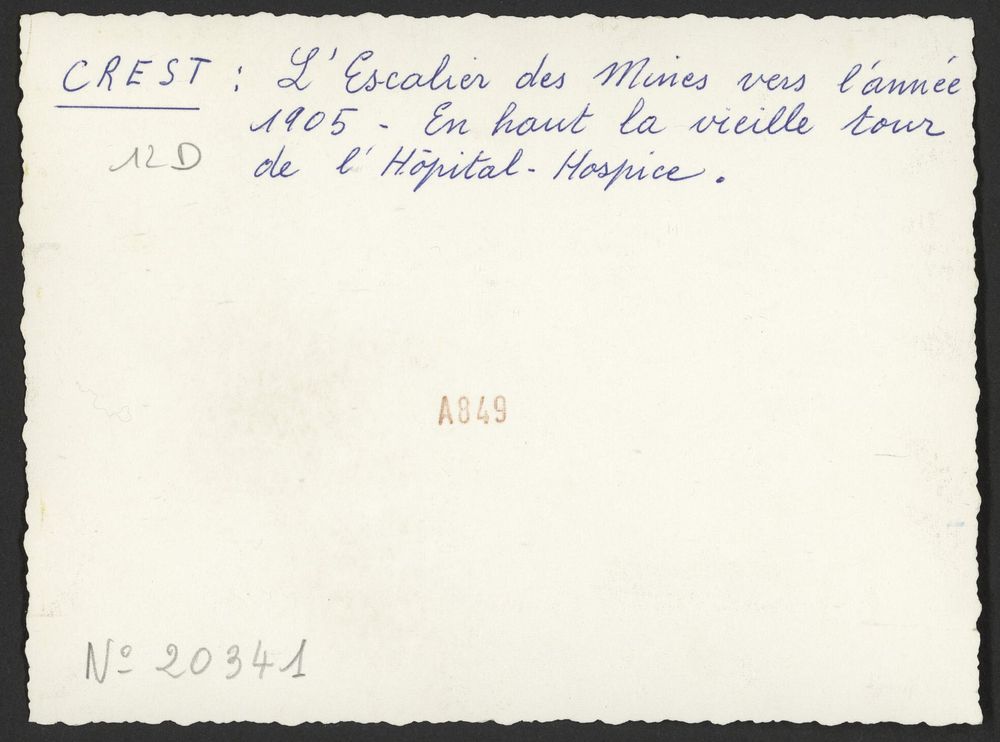 CREST : L'Escalier des Mines vers l'année
1905 - En haut la vieille tour
12D de l'Hôpital-Hospice.
A849
Nº 20341